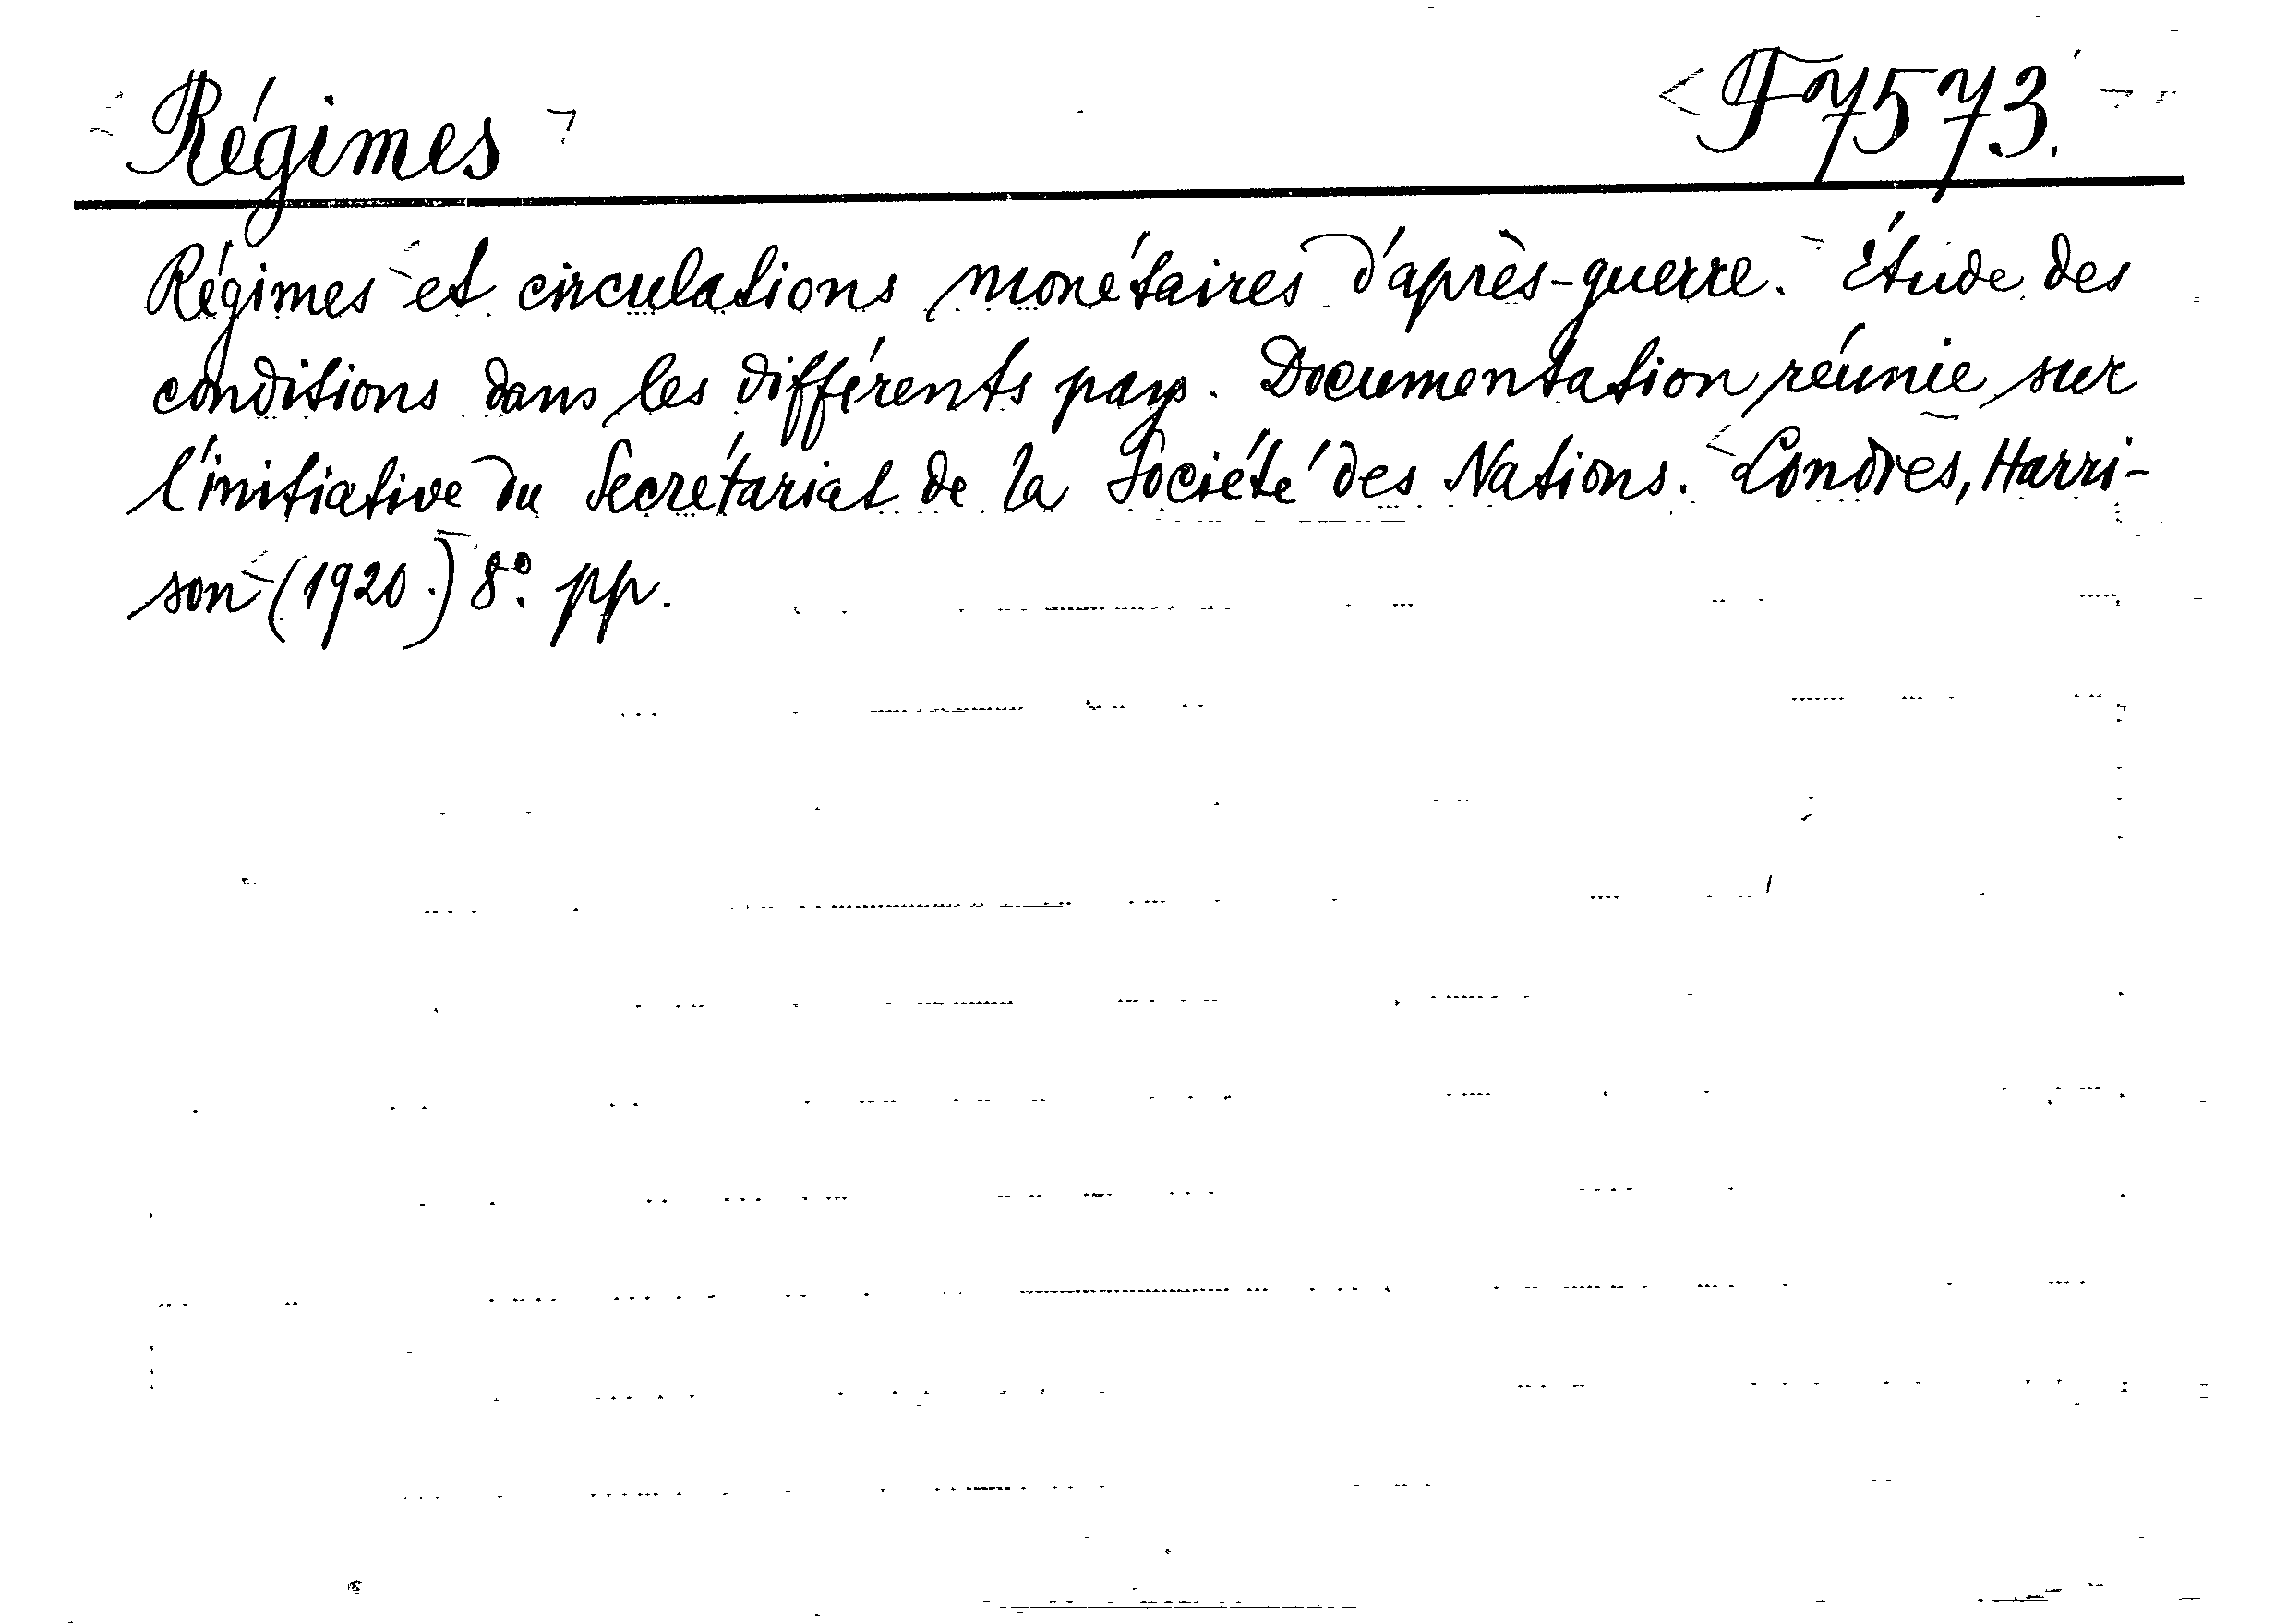 Régimes
F 7573.
Régimes et circulations monétaires d'après-guerre. Étude des
conditions dans les différents pays. Documentation réunie sur
l'initiative du Secrétariat de la Société des Nations. Londres, Harri-
son (1920.) 8°. pp.